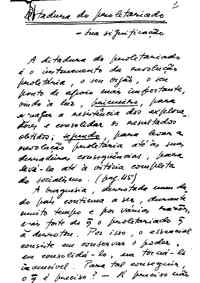 Ditadura do proletariado
— sua significação
A ditadura do proletariado
é o instrumento da revolução
proletária, o seu órgão, o seu
ponto de apoio mais importante,
onde à luz, primeiro, para
a resistência dos explora
dores e consolidar os resultados
obtidos, segundo, para levar a
revolução proletária até às suas
derradeiras consequências, para
levá-lo até à vitória completa
do socialismo (pag. 45)
A burguesia, derrotada num da
do país continua a ser, durante
muito tempo e por várias razões,
mais forte do q o proletariado q
a derrotou. Por isso, o essencial
consiste em conservar o poder,
em consolidá-lo, em torná-lo
invencível. Para tal conseguir,
o q é preciso? — É preciso não